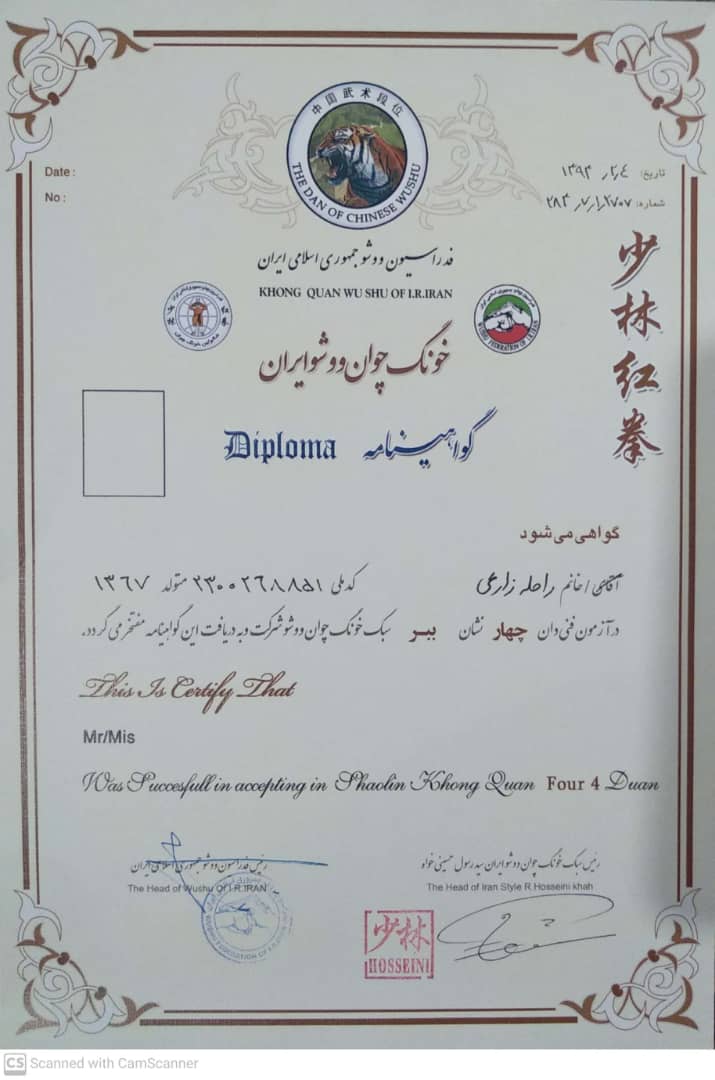 中国武术段位
THE DAN OF CHINESE WUSHU
Date :
تاریخ: ۱۳۹۴٫۲٫۴
No :
شماره: ۲۸۴٫۷٫۱٫۲۷۰۷
فدراسیون ووشو جمهوری اسلامی ایران
KHONG QUAN WU SHU OF I.R.IRAN
WUSHU FEDERATION OF I.R.IRAN
少林红拳
خونگ چوان ووشو ایران
Diploma گواهینامه
گواهی می شود
آقای/خانم راحله زارعی کد ملی ۲۳۰۰۲۶۸۸۵۱ متولد ۱۳۶۷
در آزمون فنی دان چهار نشان ببر سبک خونگ چوان ووشو شرکت و به دریافت این گواهینامه مفتخر می گردد.
This Is Certify That
Mr/Mis
Was Succesfull in accepting in Shaolin Khong Quan Four 4 Duan
رئیس فدراسیون ووشو جمهوری اسلامی ایران
The Head of Wushu Of I.R.IRAN
رئیس سبک خونگ چوان ووشو ایران سید رسول حسینی خواه
The Head of Iran Style R.Hosseini khah
少林
HOSSEINI
CS Scanned with CamScanner